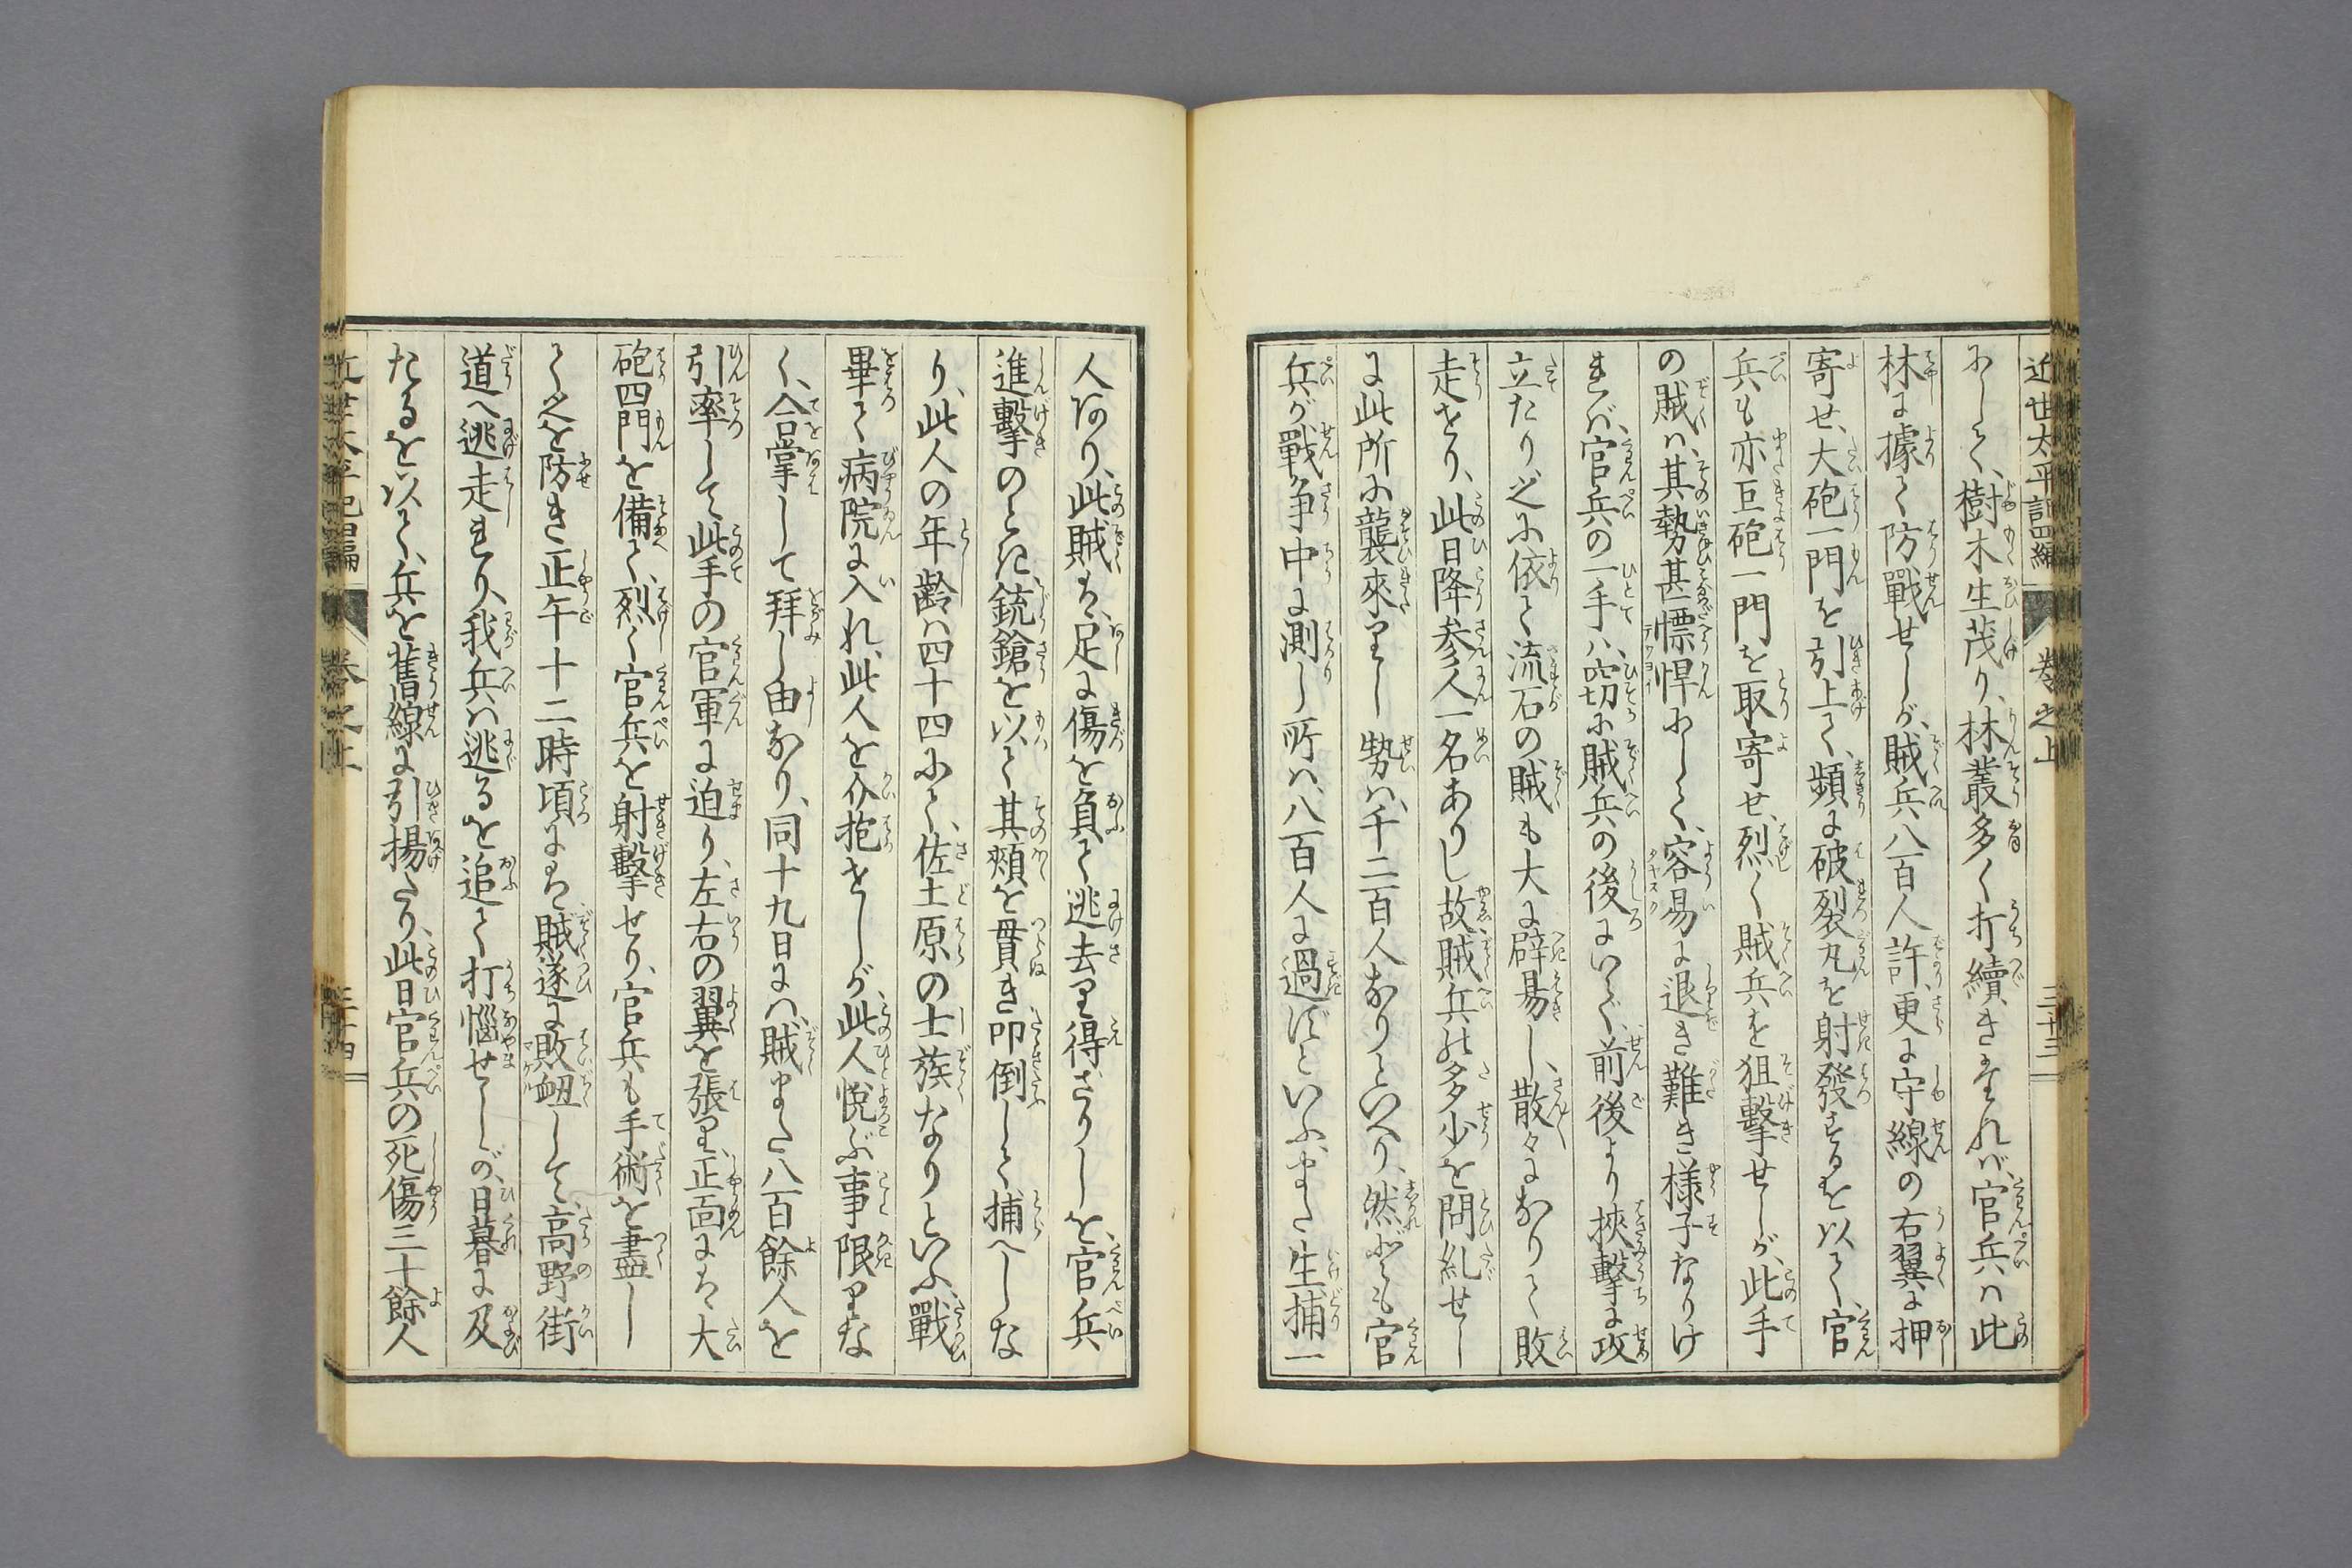 近世太平記四編 巻之上 三十三
にして、樹木生茂り、林叢多く打續きたれバ、官兵ハ此
林に據て防戰せしが、賊兵八百人許、更に守線の右翼に押
寄せ、大砲一門を引上て、頻に破裂丸を射發するを以て、官
兵も亦巨砲一門を取寄せ、烈しく賊兵を狙擊せしが、此手
の賊ハ、其勢甚慓悍にして、容易に退き難き様子なりけ
れバ、官兵の一手ハ、窃に賊兵の後にいで、前後より挾擊に攻
立たり、之に依て流石の賊も大に辟易し、散々になりて敗
走せり、此日降参人一名ありし故、賊兵の多少を問糺せし
に此所に襲來りし勢ハ、千二百人なりといへり、然ども官
兵が戰争中に測し所ハ、八百人に過ずといふ、また生捕一
人あり、此賊ハ、足に傷を負て逃去り得ざりしを、官兵
進擊のとき、銃鎗を以て其頰を貫き叩倒して、捕へしな
り、此人の年齡ハ四十四にて、佐土原の士族なりといふ、戰
畢て病院に入れ、此人を介抱せしが、此人悅ぶ事限りな
く、合掌して拜し由なり、同十九日にハ、賊また八百餘人を
引率して此手の官軍に迫り、左右の翼を張り、正面にハ大
砲四門を備て、烈く官兵を射擊せり、官兵も手術を盡し
て之を防き正午十二時頃にハ、賊遂に敗衄して、高野街
道へ逃走れり、我兵ハ逃るを追て打惱せしが、日暮に及
たるを以て、兵を舊線に引揚たり、此日官兵の死傷三十餘人
近世太平記四編 巻之上 三十四